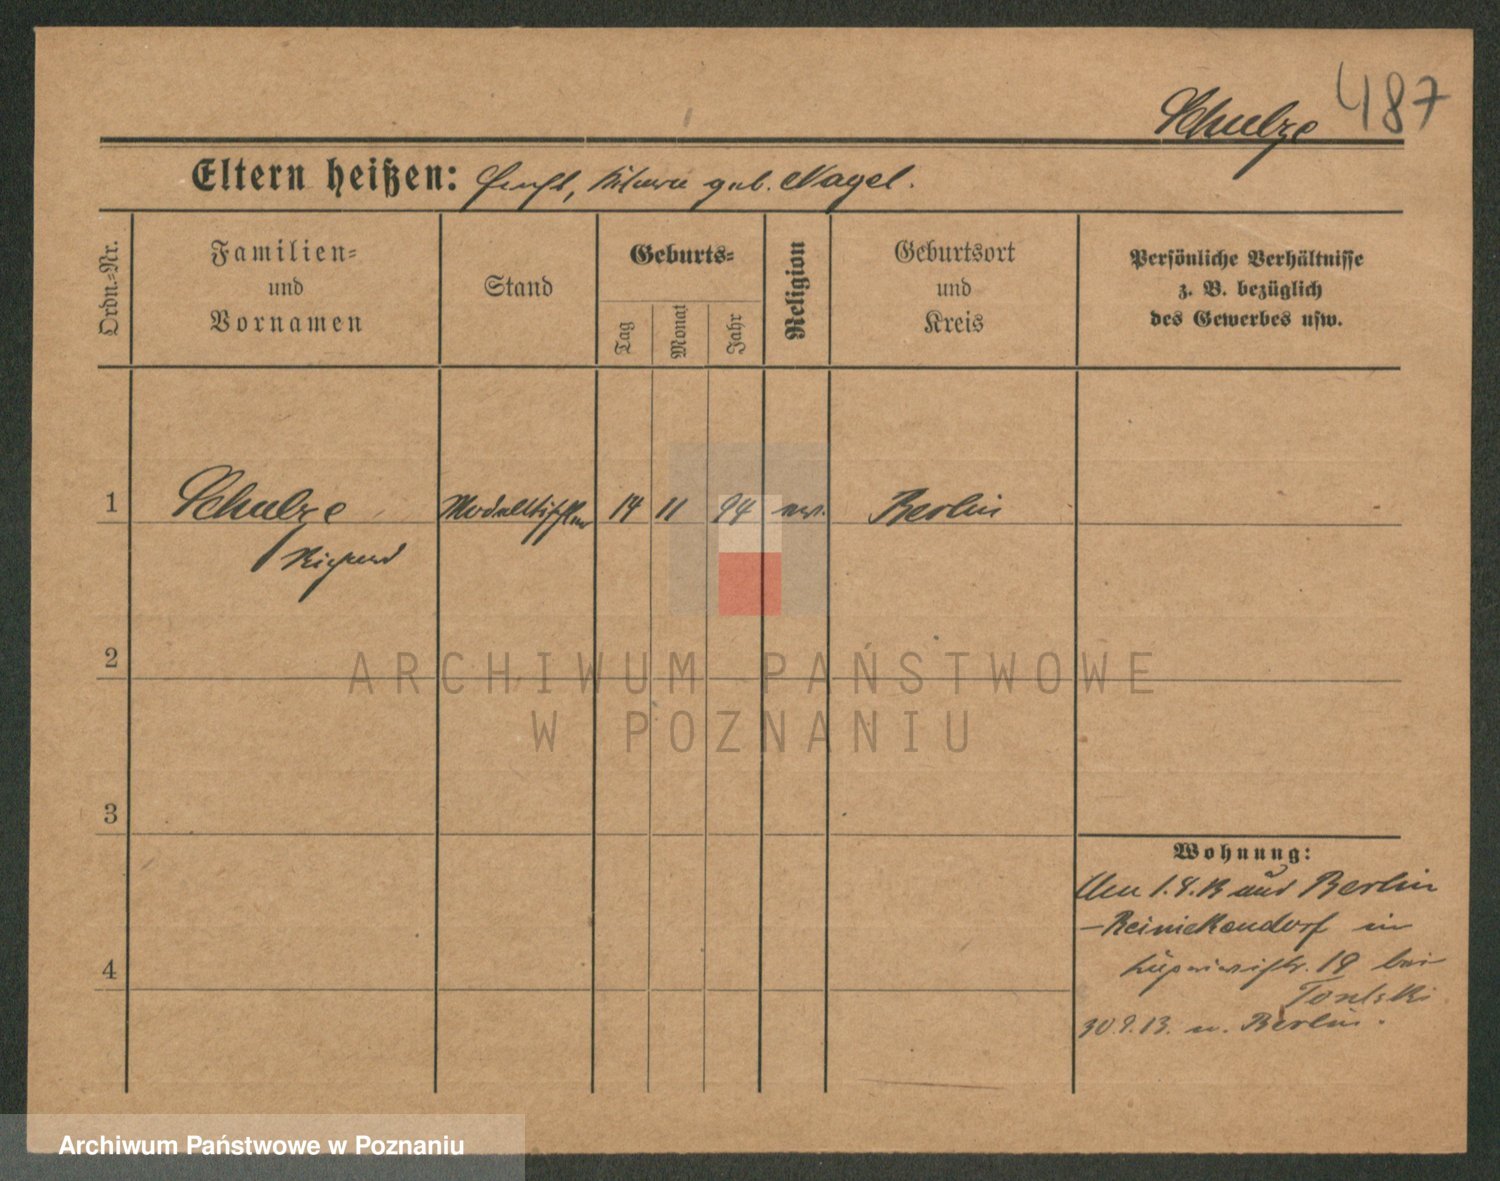 Schulze 487
Eltern heißen: geb. Nagel.
Ordn.-Nr.
Familien-
und
Vornamen
Stand
Geburts-
Tag
Monat
Jahr
Religion
Geburtsort
und
Kreis
Persönliche Verhältnisse
z. B. bezüglich
des Gewerbes usw.
1 Schulze Modelltischler 14 11 94 ev. Berlin
Richard
2
3
4
Wohnung:
1.8.13 aus Berlin
-Reinickendorf in
19 bei
30.9.13. n. Berlin.
ARCHIWUM PAŃSTWOWE
W POZNANIU
Archiwum Państwowe w Poznaniu